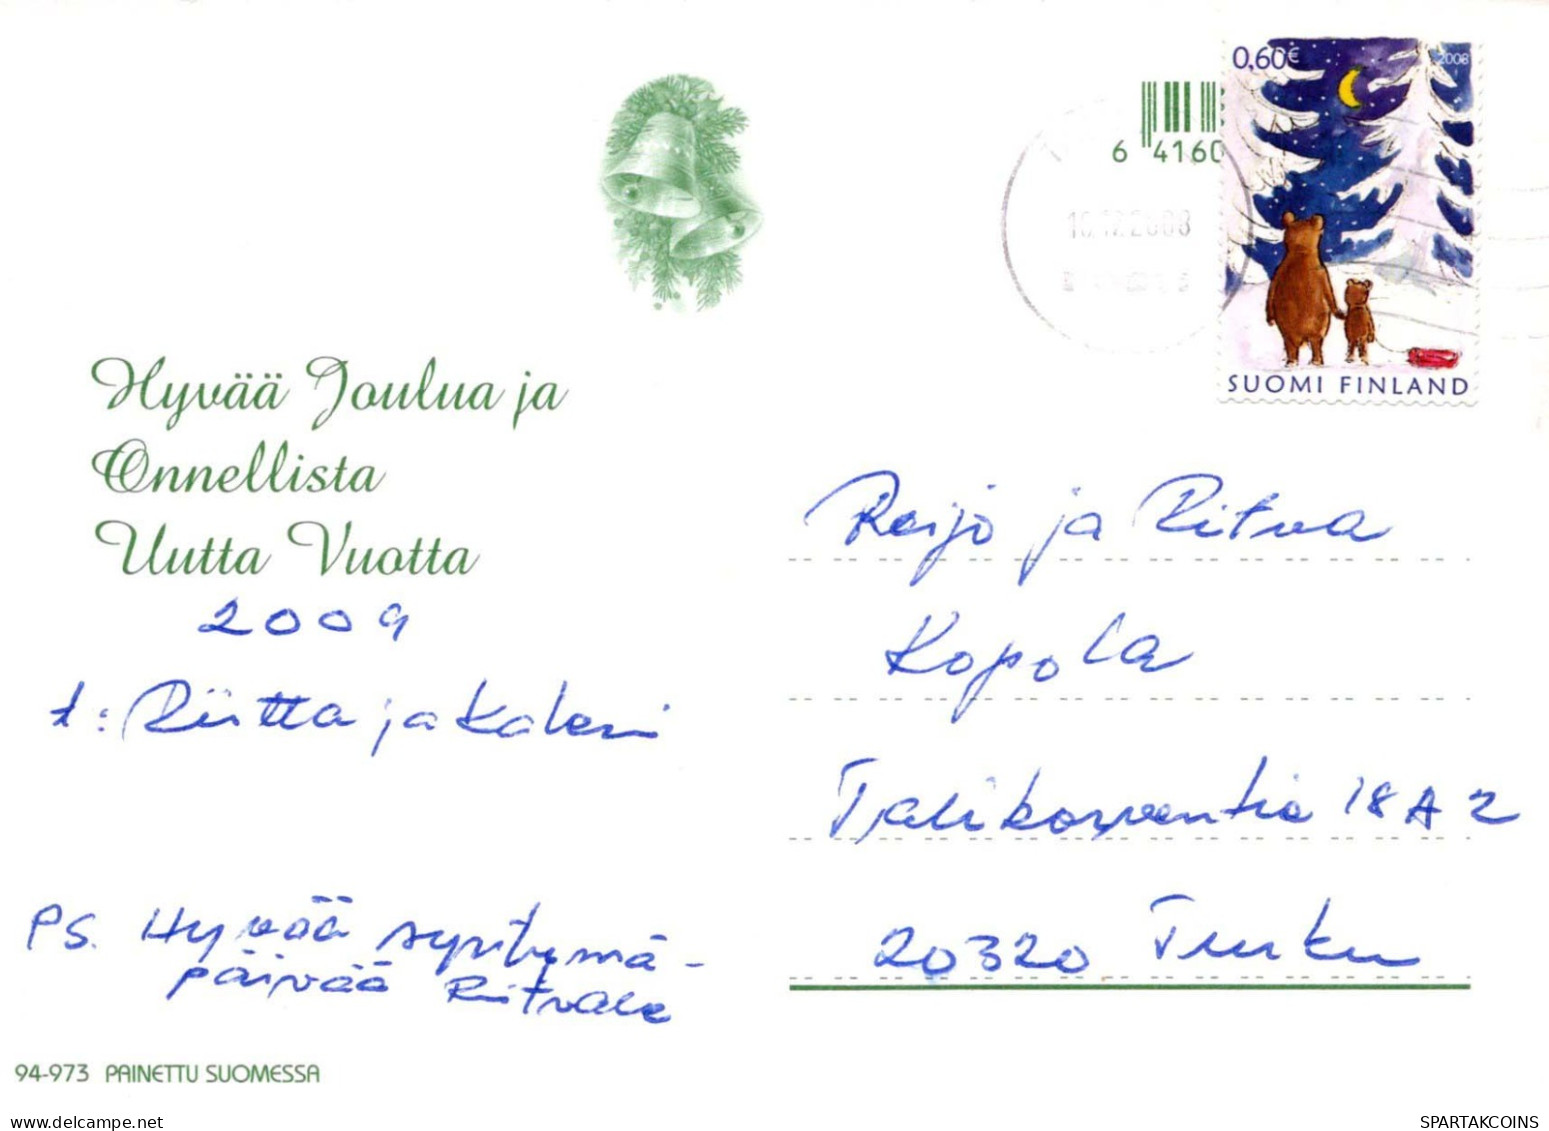 0,60€ 2008
6 4160
SUOMI FINLAND
Hyvää Joulua ja
Onnellista
Uutta Vuotta
2009
t: Riitta ja Kalevi
PS. Hyvää syntymä-
päivää Ritvalle
Reijo ja Ritva
Kopola
Talikorventie 18 A 2
20320 Turku
94-973 PAINETTU SUOMESSA
delcampe.net
SPARTAKCOINS